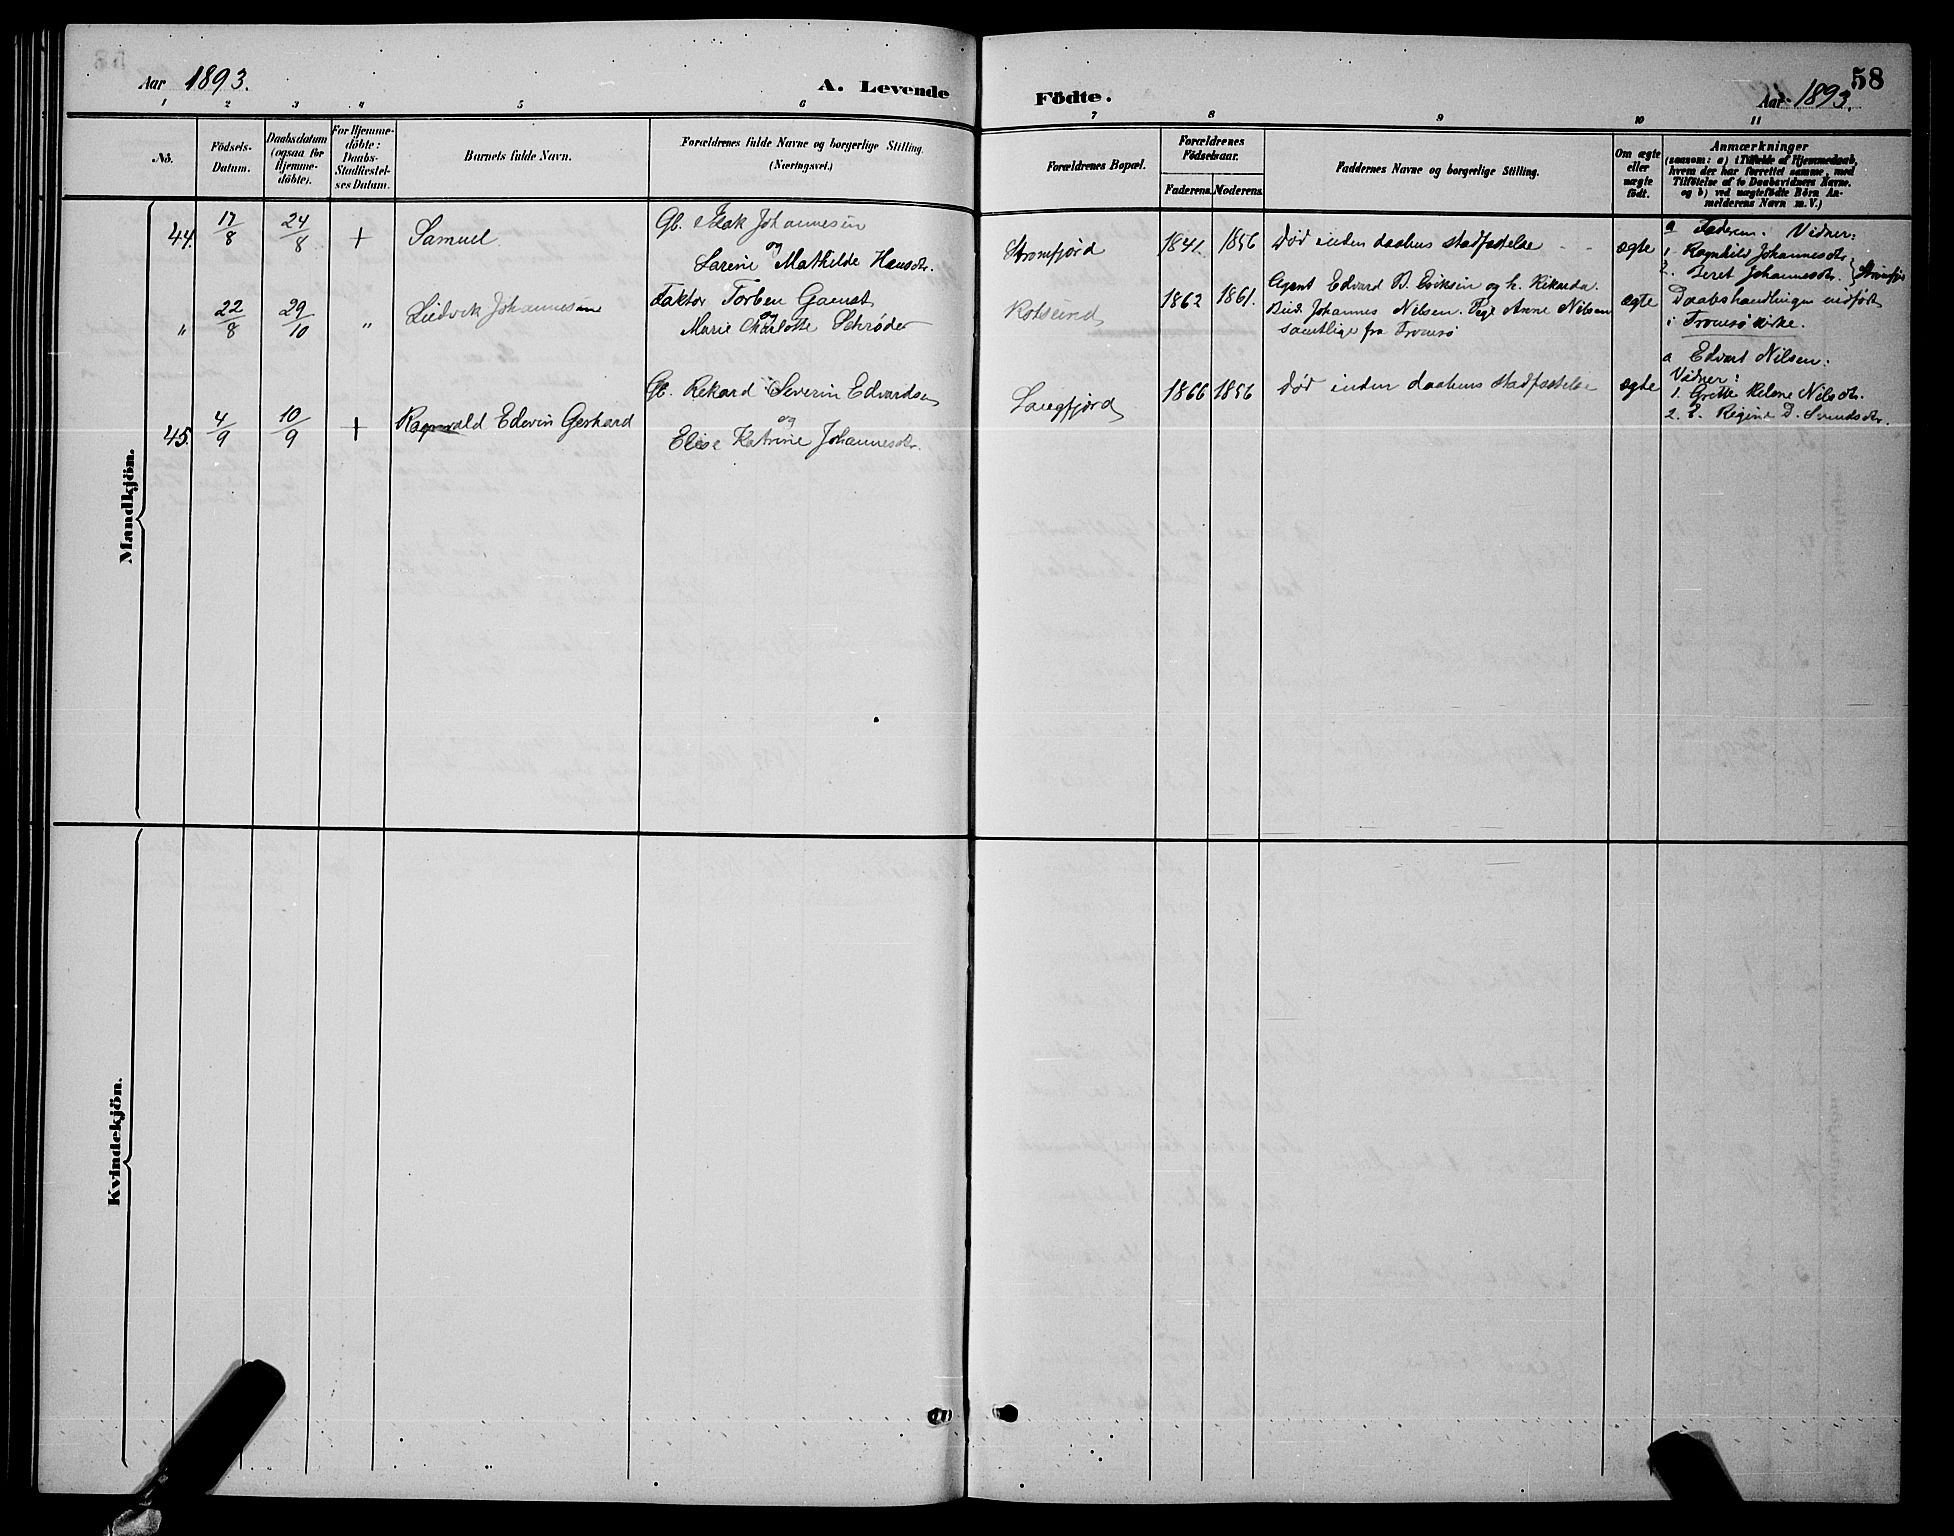 Aar 1893.
A. Levende
Födte.
58
Aar 1893.
1 2 3 4 5 6 7 8 9 10 11
Nö.
Födsels-
Datum.
Daabsdatum
(ogsaa for
Hjemme-
döbte).
For Hjemme-
döbte:
Daabs-
Stadfæstel-
ses Datum.
Barnets fulde Navn.
Forældrenes fulde Navne og borgerlige Stilling.
(Næringsvei.)
Forældrenes Bopæl.
Forældrenes
Födselsaar.
Faderens. Moderens.
Faddernes Navne og borgerlige Stilling.
Om ægte
eller
uægte
födt.
Anmærkninger
(saasom: a) i Tilfælde af Hjemmedaab,
hvem der har forrettet samme, med
Tilföielse af to Daabsvidners Navne.
og b) ved uægtefödte Börn An-
melderens Navn m. V.)
Mandkjön.
44. 17/8 24/8 + Samuel
Gb. Isak Johannesen
og
Larine Mathilde Hansdtr.
Strømfjord 1841 1856 Død inden daabens stadfæstelse - - ægte
a Faderen. Vidner:
1. Ragnhild Johannesdtr.
2. Beret Johannesdtr. } Strømfjord
" 22/8 29/10 " Ludvik Johannesen
Faktor Torben Gamst
og
Marie Charlotte Schrøder
Rotsund 1862 1861.
Agent Edvard B. Eriksen og h. Rikarda.
Bud. Johannes Nilsen. Pige Anne Nilsen
samtlige fra Tromsø
ægte
Daabshandlingen indført
i Tromsø kirke.
45. 4/9 10/9 + Ragnvald Edevin Gerhard
Gb. Rekard Severin Edvardsen
og
Elise Katrine Johannesdtr.
Langfjord 1866 1856 Død inden daabens stadfæstelse ægte
a Edvart Nilsen:
Vidner:
1. Grette Helene Nilsdtr.
2. E. Regine D. Svendsdtr.
Kvindekjön.